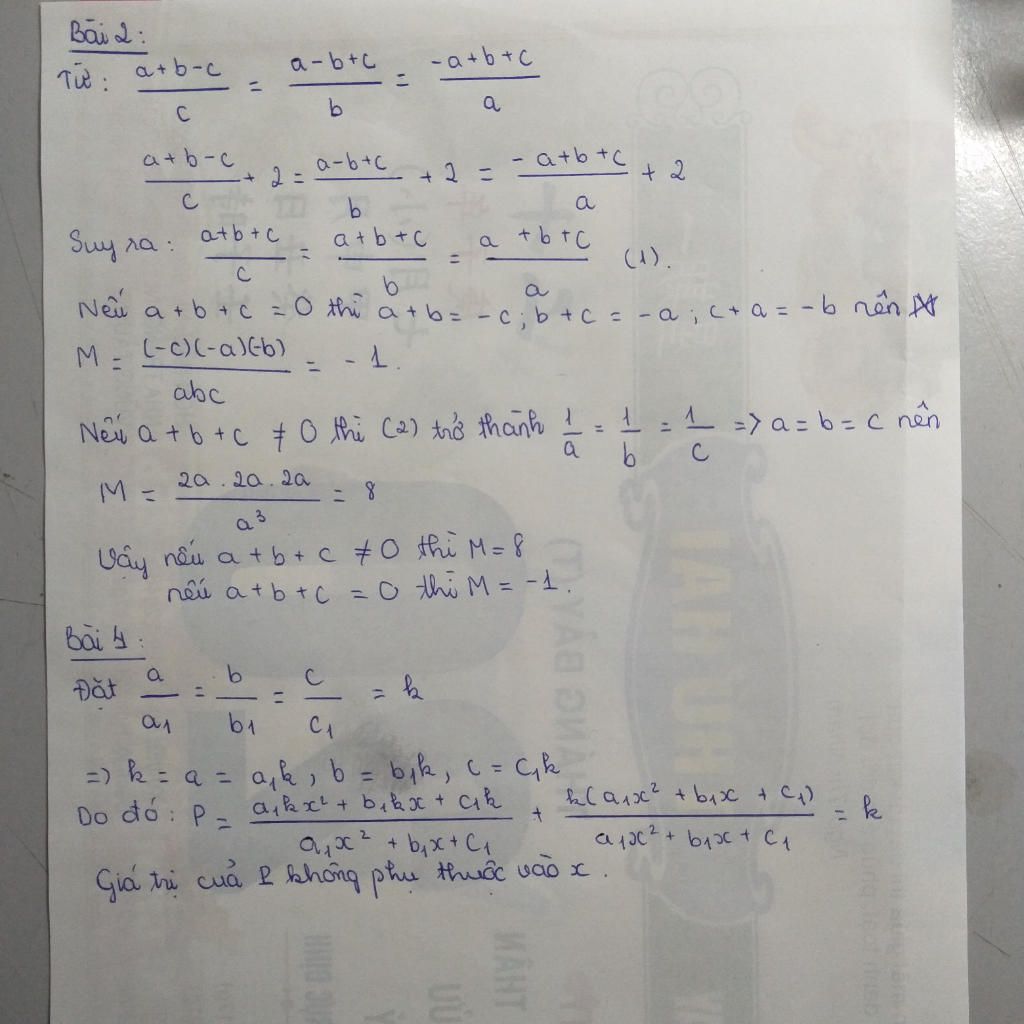 Bài 2:
Từ: \frac{a+b-c}{c} = \frac{a-b+c}{b} = \frac{-a+b+c}{a}
\frac{a+b-c}{c} + 2 = \frac{a-b+c}{b} + 2 = \frac{-a+b+c}{a} + 2
Suy ra: \frac{a+b+c}{c} = \frac{a+b+c}{b} = \frac{a+b+c}{a} (1).
Nếu a + b + c = 0 thì a + b = -c ; b + c = -a ; c + a = -b nên
M = \frac{(-c)(-a)(-b)}{abc} = -1.
Nếu a + b + c ≠ 0 thì (2) trở thành \frac{1}{a} = \frac{1}{b} = \frac{1}{c} => a = b = c nên
M = \frac{2a . 2a . 2a}{a^3} = 8
Vậy nếu a + b + c ≠ 0 thì M = 8
nếu a + b + c = 0 thì M = -1.
Bài 4:
Đặt \frac{a}{a_1} = \frac{b}{b_1} = \frac{c}{c_1} = k
=> k = a = a_1k, b = b_1k, c = c_1k
Do đó: P = \frac{a_1kx^2 + b_1kx + c_1k}{a_1x^2 + b_1x + c_1} + \frac{k(a_1x^2 + b_1x + c_1)}{a_1x^2 + b_1x + c_1} = k
Giá trị của P không phụ thuộc vào x.